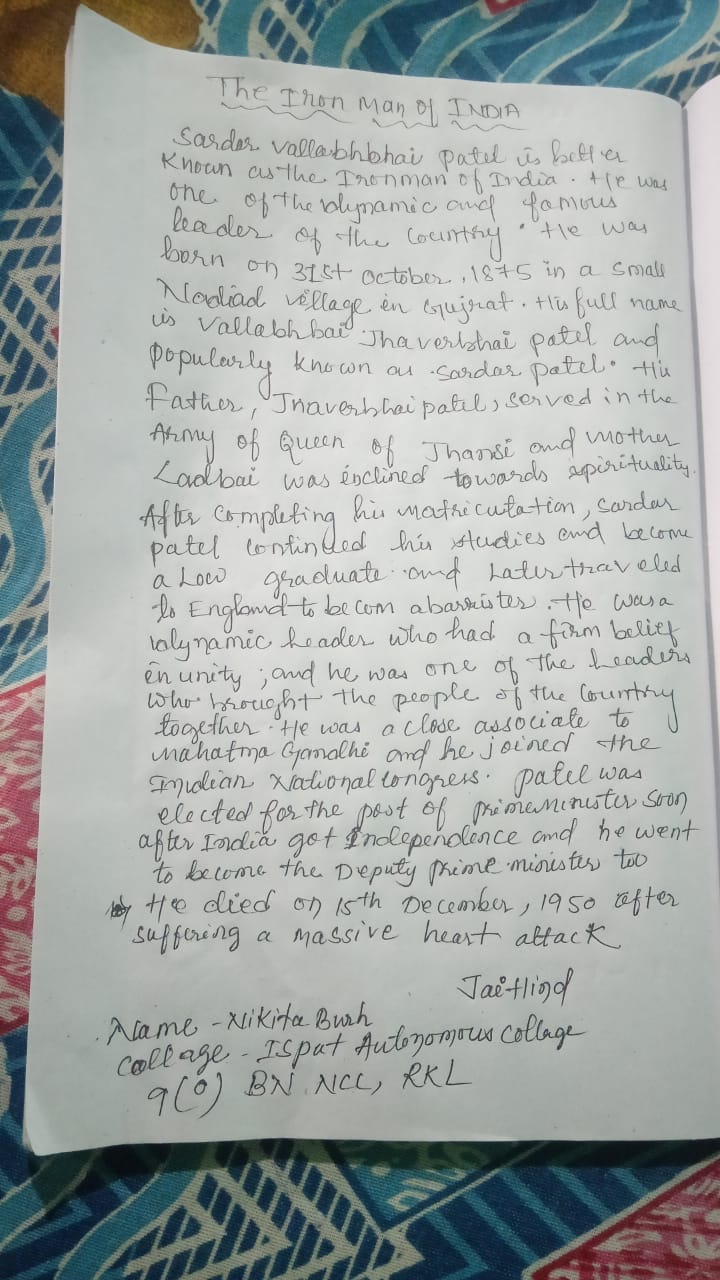 The Iron Man of INDIA
Sardar vallabhbhai patel is better
Known as the Ironman of India. He was
one of the dynamic and famous
leader of the Country. He was
born on 31st October, 1875 in a small
Nadiad village in Gujrat. His full name
is vallabhbai Jhaverbhai patel and
popularly known as Sardar patel. His
Father, Jhaverbhai patel, served in the
Army of Queen of Jhansi and mother
Ladbai was inclined towards spirituality.
After Completing his matriculation, sardar
patel continued his studies and become
a Low graduate and Later traveled
to England to becom a barrister. He was a
dynamic Leader who had a firm belief
in unity ; and he was one of the Leaders
who brought the people of the Country
together. He was a close associate to
mahatma Gandhi and he joined the
Indian National Congress. patel was
elected for the post of primeminister soon
after India got Independence and he went
to become the Deputy prime minister too
He died on 15th December, 1950 after
suffering a massive heart attack
Jai Hind
Name - Nikita Burh
Collage - Ispat Autonomous Collage
9(O) BN NCC, RKL